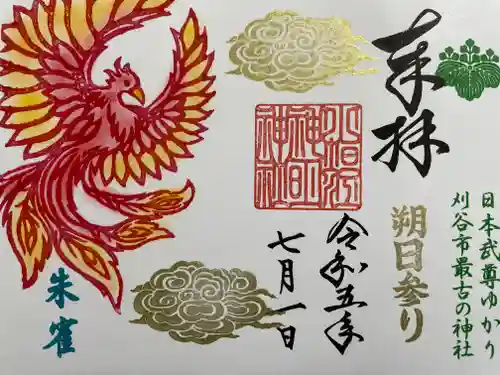 奉拝
日本武尊ゆかり
刈谷市最古の神社
朔日参り
令和五年
七月一日
朱雀